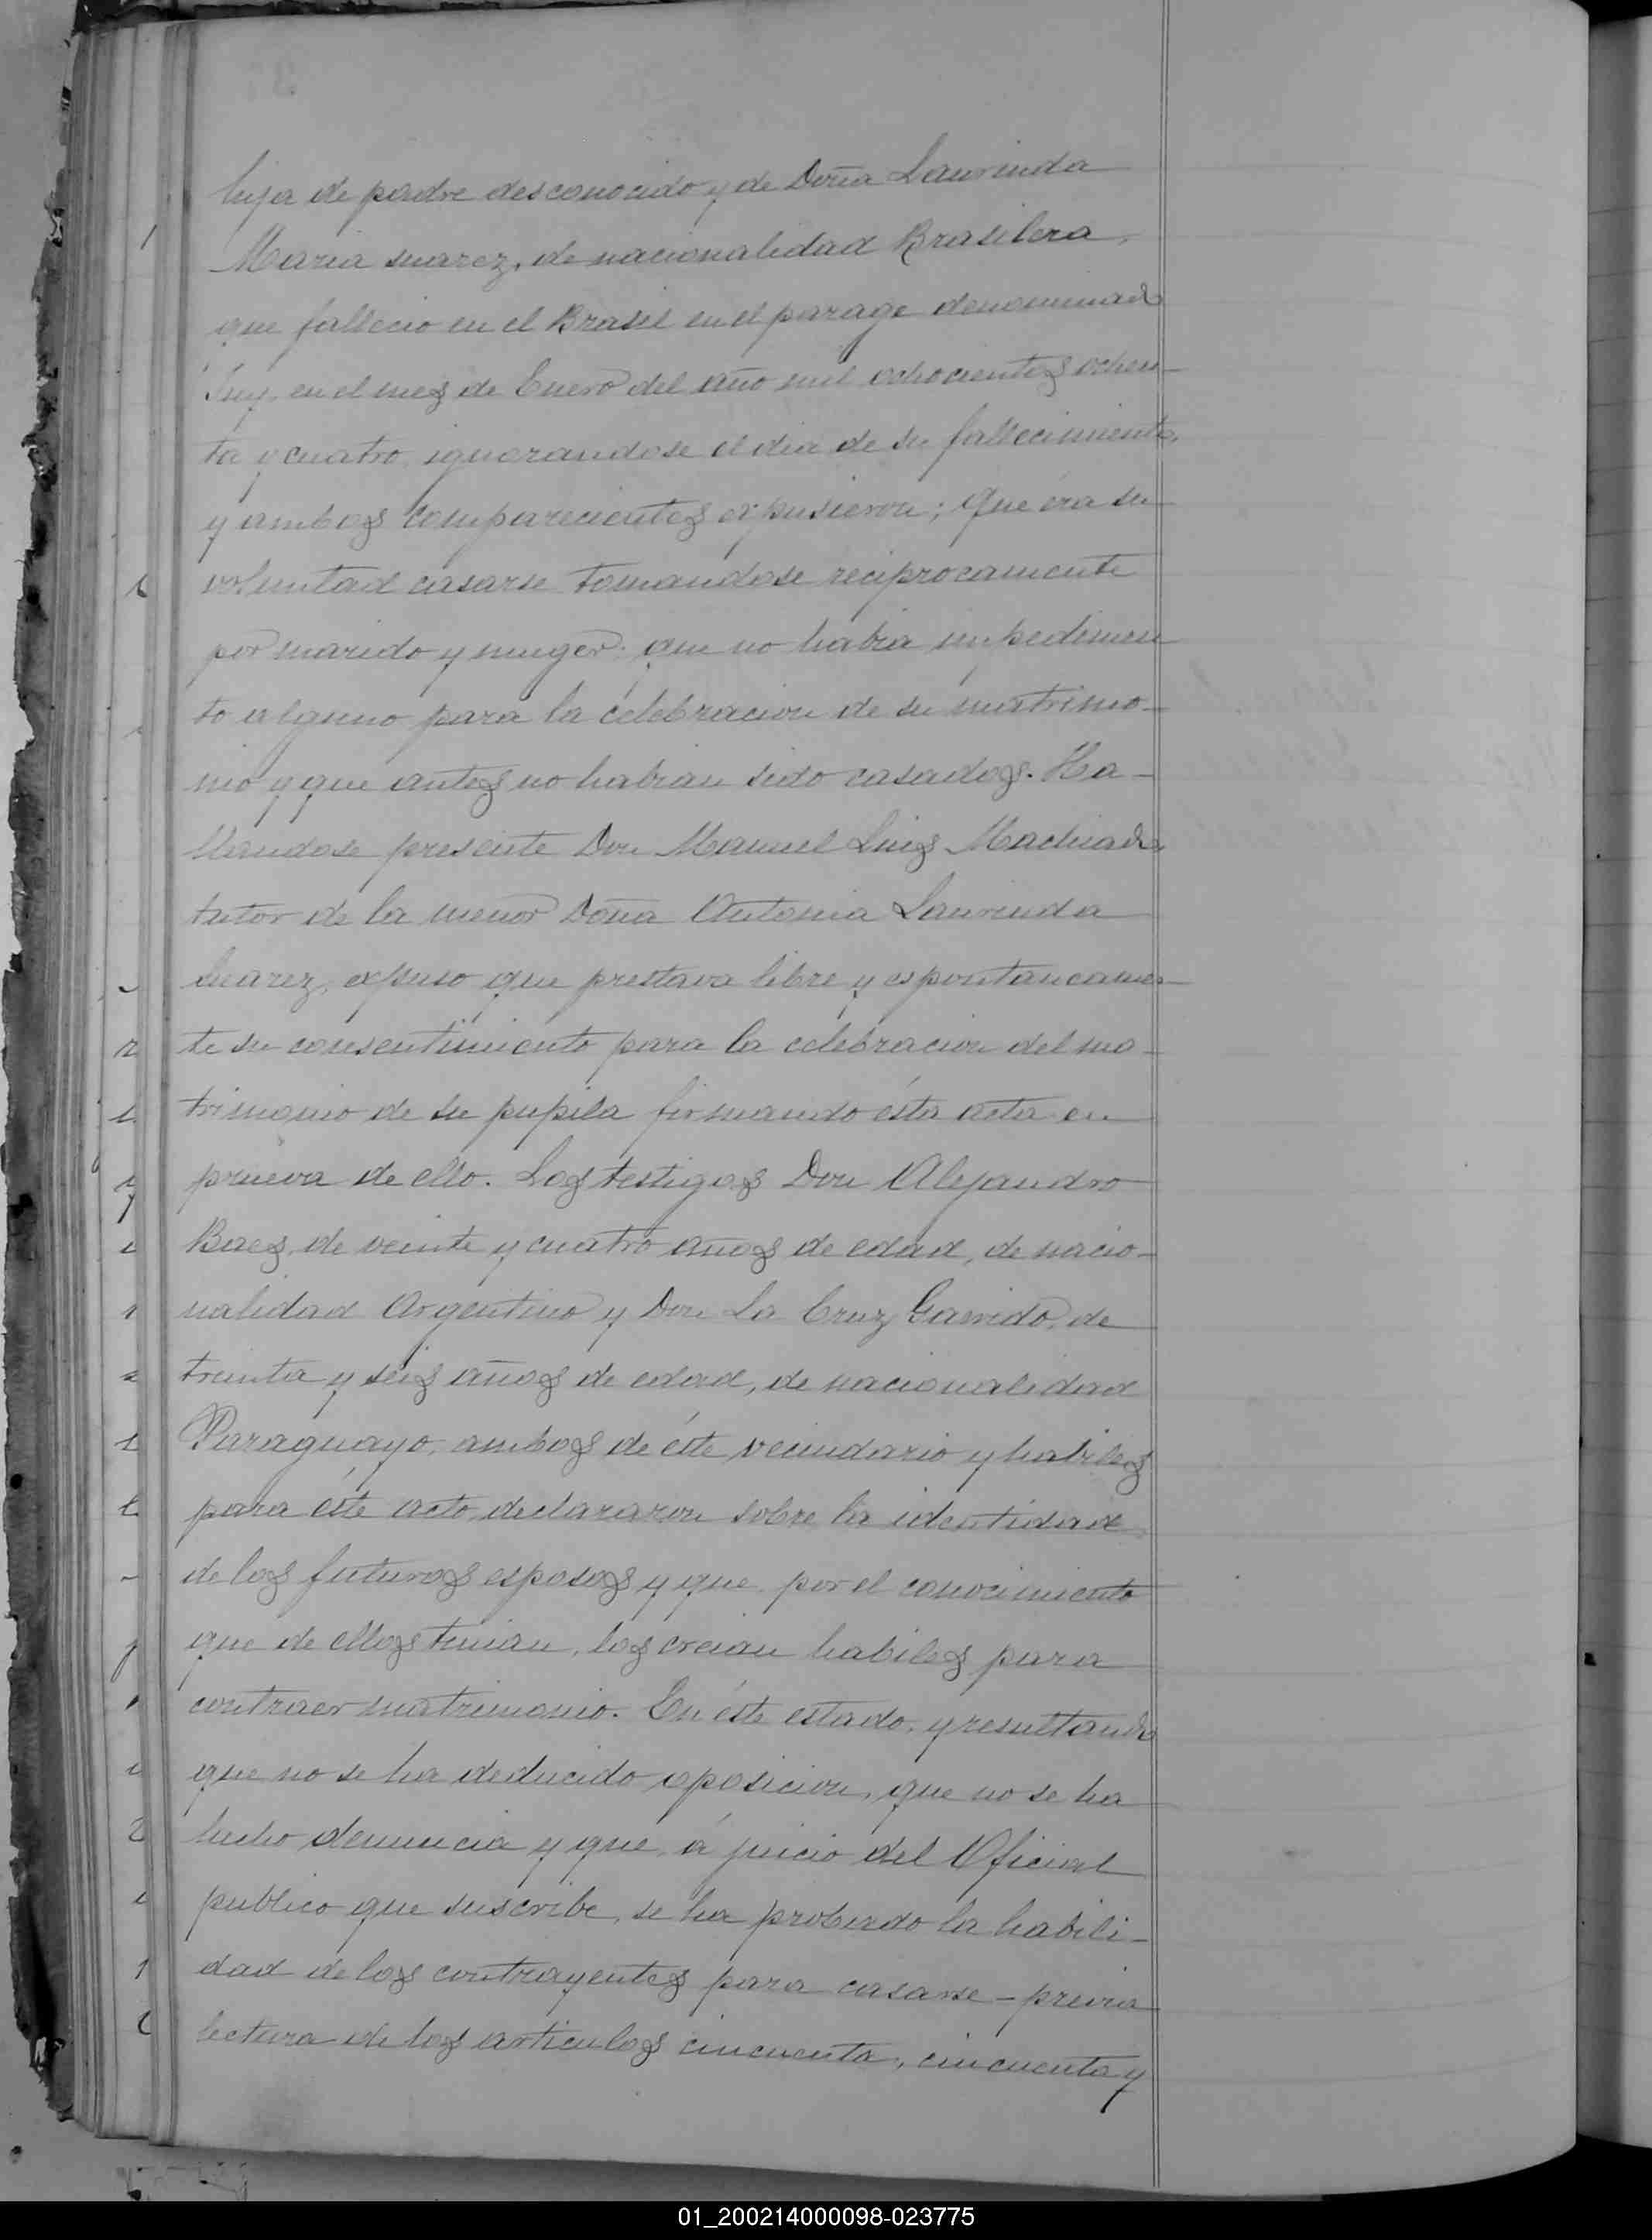 hija de padre desconocido y de Doña Laurinda
Maria suarez, de nacionalidad Brasilera,
que fallecio en el Brasil en el parage denominado
en el mes de Enero del año mil ochocientos ochen-
ta y cuatro, ignorandose el dia de su fallecimiento,
y ambos comparecientes expusieron; Que éra su
voluntad casarse tomandose reciprocamente
por marido y muger; que no habia impedimen
to alguno para la celebracion de su matrimo-
nio y que antes no habian sido casados. Ha-
llandose presente Don Manuel Luis Machado,
tutor de la menor Doña Antonia Laurinda
Suarez, expuso que prestava libre y espontaneamen-
te su consentimiento para la celebracion del ma-
trimonio de su pupila firmando ésta acta en
prueva de ello. Los testigos Don Alejandro
Baes, de veinte y cuatro años de edad, de nacio-
nalidad Argentino y Don La Cruz Garrido, de
treinta y seis años de edad, de nacionalidad
Paraguayo, ambos de éste vecindario y habiles
para éste acto, declararon sobre la identidad
de los futuros esposos y que por el conocimiento
que de ellos tenian, los creian habiles para
contraer matrimonio. En éste estado, y resultando
que no se ha deducido oposicion, que no se ha
hecho denuncia y que, á juicio del Oficial
publico que suscribe, se ha probado la habili-
dad de los contrayentes para casarse - previa
lectura de los articulos cincuenta, cincuenta y
01_200214000098-023775